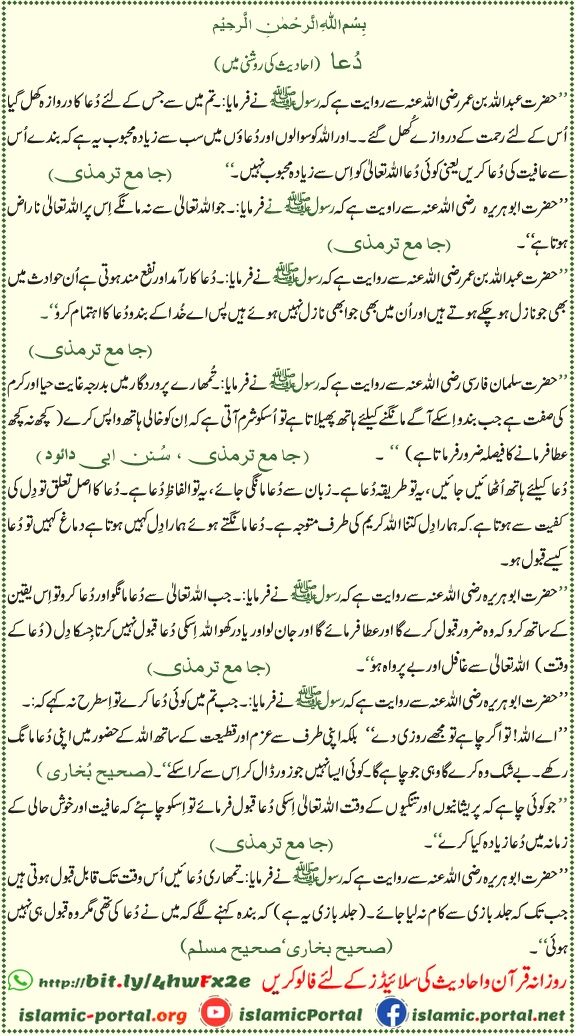 بِسْمِ اللهِ الرَّحْمٰنِ الرَّحِيْمِ
دُعا (احادیث کی روشنی میں)
’’حضرت عبداللہ بن عمر رضی اللہ عنہ سے روایت ہے کہ رسول ﷺ نے فرمایا:۔ تم میں سے جس کے لئے دُعا کا دروازہ کھل گیا
اُس کے لئے رحمت کے دروازے کُھل گئے ۔۔ اور اللہ کو سوالوں اور دُعاؤں میں سب سے زیادہ محبوب یہ ہے کہ بندے اُس
سے عافیت کی دُعا کریں یعنی کوئی دُعا اللہ تعالیٰ کو اِس سے زیادہ محبوب نہیں۔‘‘ (جامع ترمذی)
’’حضرت ابو ہریرہ رضی اللہ عنہ سے راویت ہے کہ رسول ﷺ نے فرمایا:۔ جو اللہ تعالیٰ سے نہ مانگے اِس پر اللہ تعالیٰ ناراض
ہوتا ہے‘‘۔ (جامع ترمذی)
’’حضرت عبداللہ بن عمر رضی اللہ عنہ سے روایت ہے کہ رسول ﷺ نے فرمایا:۔ دُعا کارآمد اور نفع مند ہوتی ہے اُن حوادث میں
بھی جو نازل ہو چکے ہوتے ہیں اور اُن میں بھی جو ابھی نازل نہیں ہوئے ہیں پس اے خُدا کے بندو دُعا کا اہتمام کرو‘‘۔
(جامع ترمذی)
’’حضرت سلمان فارسی رضی اللہ عنہ سے روایت ہے کہ رسول ﷺ نے فرمایا:۔ تُمھارے پروردگار میں بدرجہ غایت حیا اور کرم
کی صفت ہے جب بندہ اِسکے آگے مانگنے کیلئے ہاتھ پھیلاتا ہے تو اُسکو شرم آتی ہے کہ اِن کو خالی ہاتھ واپس کرے (کچھ نہ کچھ
عطا فرمانے کا فیصلہ ضرور فرماتا ہے) ‘‘۔ (جامع ترمذی ، سُنن ابی دائود)
دُعا کیلئے ہاتھ اُٹھائیں جائیں، یہ تو طریقہ دُعا ہے۔ زبان سے دُعا مانگی جائے، یہ تو الفاظِ دُعا ہے۔ دُعا کا اصل تعلق تو دِل کی
کفیت سے ہوتا ہے کہ ہمارا دِل کتنا اللہ کریم کی طرف متوجہ ہے۔ دُعا مانگتے ہوئے ہمارا دِل کہیں ہوتا ہے دماغ کہیں تو دُعا
کیسے قبول ہو۔
’’حضرت ابو ہریرہ رضی اللہ عنہ سے روایت ہے کہ رسول ﷺ نے فرمایا:۔ جب اللہ تعالیٰ سے دُعا مانگو اور دُعا کرو تو اِس یقین
کے ساتھ کرو کہ وہ ضرور قبول کرے گا اور عطا فرمائے گا اور جان لو اور یاد رکھو اللہ اِسکی دُعا قبول نہیں کرتا جِسکا دِل (دُعا کے
وقت) اللہ تعالیٰ سے غافل اور بے پرواہ ہو‘‘۔ (جامع ترمذی)
’’حضرت ابو ہریرہ رضی اللہ عنہ سے روایت ہے کہ رسول ﷺ نے فرمایا:۔ جب تم میں کوئی دُعا کرے تو اِسطرح نہ کہے کہ:۔
’’اے اللہ! تو اگر چاہے تو مجھے روزی دے‘‘ بلکہ اپنی طرف سے عزم اور قطیعت کے ساتھ اللہ کے حضور میں اپنی دُعا مانگ
رکھے۔ بے شک وہ کرے گا وہی جو چاہے گا۔ کوئی ایسا نہیں جو زور ڈال کر اِس سے کرا سکے‘‘۔ (صحیح بُخاری)
’’جو کوئی چاہے کہ پریشانیوں اور تنگیوں کے وقت اللہ تعالیٰ اِسکی دُعا قبول فرمائے تو اِسکو چاہئے کہ عافیت اور خوش حالی کے
زمانہ میں دُعا زیادہ کیا کرے‘‘۔ (جامع ترمذی)
’’حضرت ابو ہریرہ رضی اللہ عنہ سے روایت ہے کہ رسول ﷺ نے فرمایا:۔ تمھاری دُعائیں اُس وقت تک قابل قبول ہوتی ہیں
جب تک کہ جلد بازی سے کام نہ لیا جائے۔ (جلد بازی یہ ہے) کہ بندہ کہنے لگے کہ میں نے دُعا کی تھی مگر وہ قبول ہی نہیں
ہوئی‘‘۔ (صحیح بخاری‘ صحیح مسلم)
روزانہ قرآن و احادیث کی سلائیڈز کے لئے فالو کریں http://bit.ly/4hwFx2e
islamic-portal.org islamicPortal islamic.portal.net